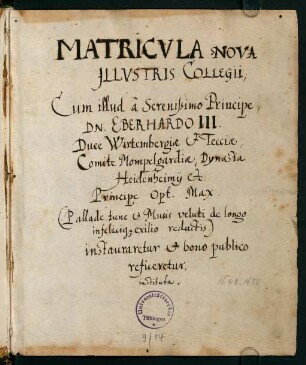 MATRICVLA NOVA
ILLVSTRIS COLLEGII,
Cum illud â Serenissimo Principe,
DN. EBERHARDO III.
Duce Wirtembergiæ & Tecciæ,
Comite Mompelgardiæ, Dynasta
Heidenheimij &c.
Principe Opt. Max.
(Pallade tunc & Musis veluti de longo
infelicuq; exilio reductis)
instauraretur & bono publico
refloreret,
instituta.
1648-
Universitätsarchiv
Tübingen
9/14